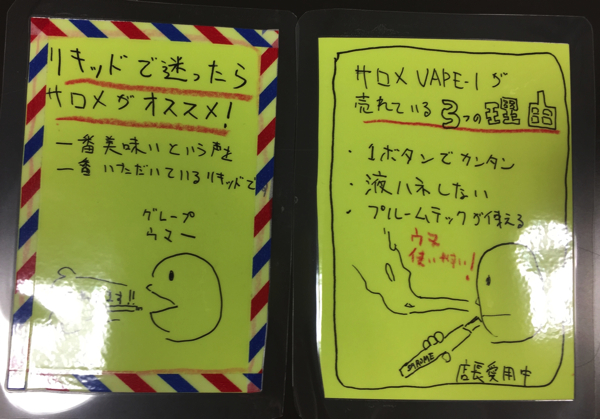 リキッドで迷ったら
サロメがオススメ!
一番美味いという声を
一番いただいているリキッドで
グレープ
ウマー
す!!
サロメ VAPE-1が
売れている3つの理由
・1ボタンでカンタン
・液ハネしない
・プルームテックが使える
ウマ
使いやすい!
SALOME
店長愛用中